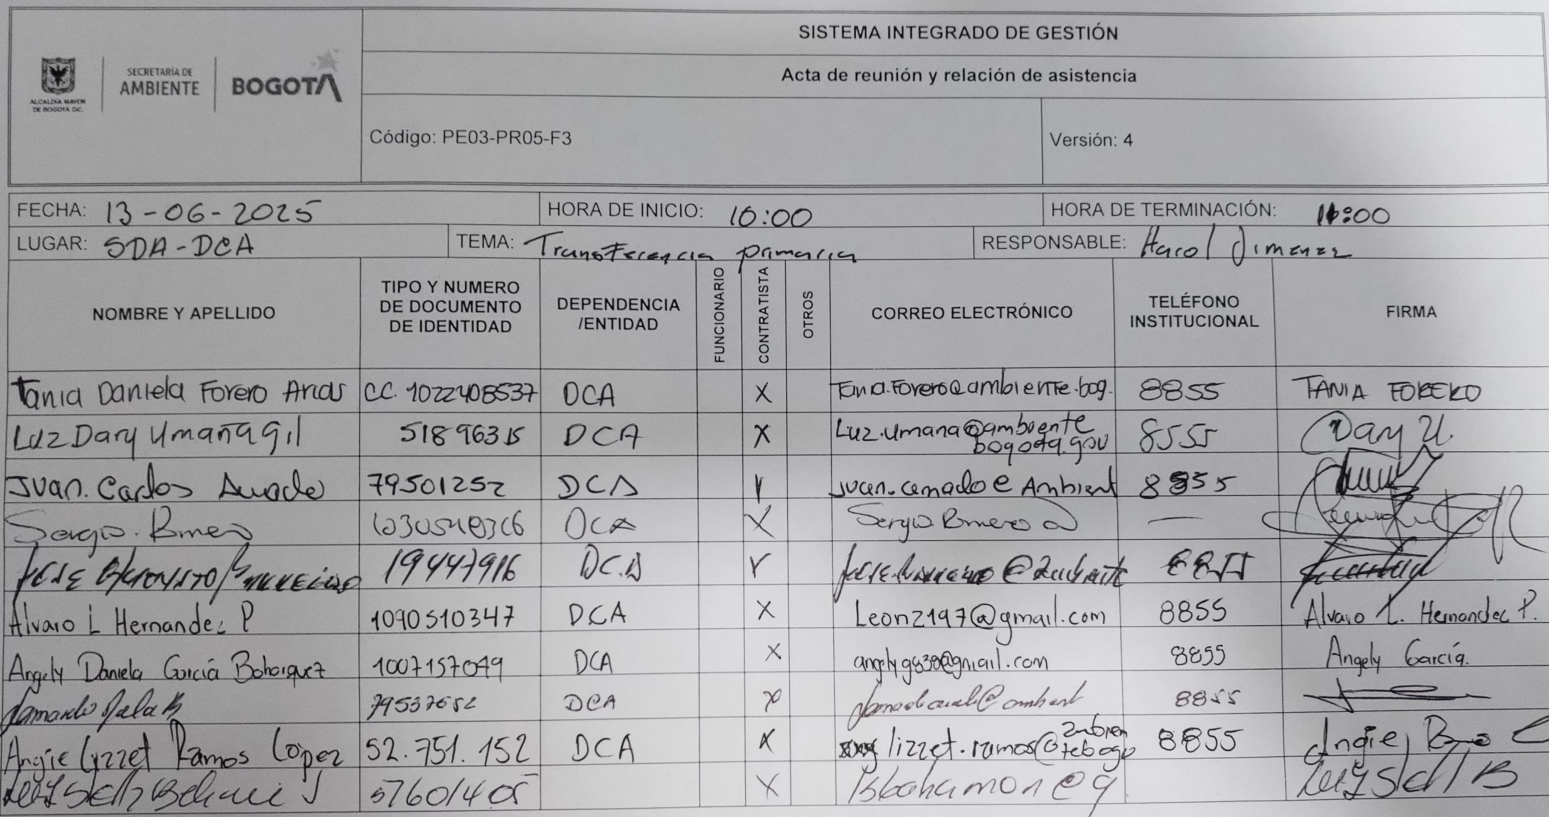 SISTEMA INTEGRADO DE GESTIÓN
Acta de reunión y relación de asistencia
ALCALDÍA MAYOR
DE BOGOTÁ D.C.
SECRETARÍA DE
AMBIENTE
BOGOTÁ
Código: PE03-PR05-F3 Versión: 4
FECHA: 13-06-2025 HORA DE INICIO: 10:00 HORA DE TERMINACIÓN: 11:00
LUGAR: SDA-DCA TEMA: Transferencia primaria RESPONSABLE: Harol Jimenez
NOMBRE Y APELLIDO TIPO Y NUMERO DE DOCUMENTO DE IDENTIDAD DEPENDENCIA /ENTIDAD FUNCIONARIO CONTRATISTA OTROS CORREO ELECTRÓNICO TELÉFONO INSTITUCIONAL FIRMA
Tania Daniela Forero Arias CC. 1022408537 DCA X Tania.Forero@ambiente.bog. 8855 TANIA FORERO
Luz Dary Umaña gil 51896315 DCA X Luz.umana@ambiente bogota.gov 8555 Dary U.
Juan. Carlos 79501252 DCA X 8855
Sergio. DCA X Sergio
19447916 DCA X 8855
Alvaro L Hernandez P 1090510347 DCA X Leon2197@gmail.com 8855 Alvaro L. Hernandez P.
Angely Daniela García Bohorquez 1007157099 DCA X angelyg830@gmail.com 8855 Angely García.
79537652 DCA X 8855
Angie Lyzzet Ramos López 52.751.152 DCA X lizzet.ramos@ambientebogo 8855 Angie
57601405 X